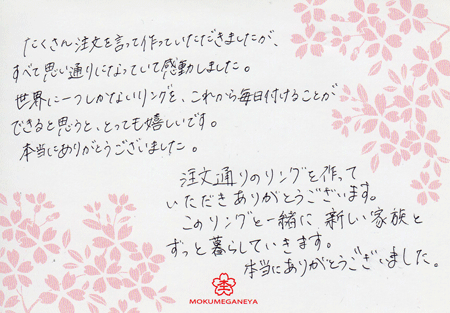 たくさん注文を言って作っていただきましたが、
すべて思い通りになっていて感動しました。
世界に一つしかないリングを、これから毎日付けることが
できると思うと、とっても嬉しいです。
本当にありがとうございました。
注文通りのリングを作って
いただきありがとうございます。
このリングと一緒に 新しい家族と
ずっと暮らしていきます。
本当にありがとうございました。
MOKUMEGANEYA